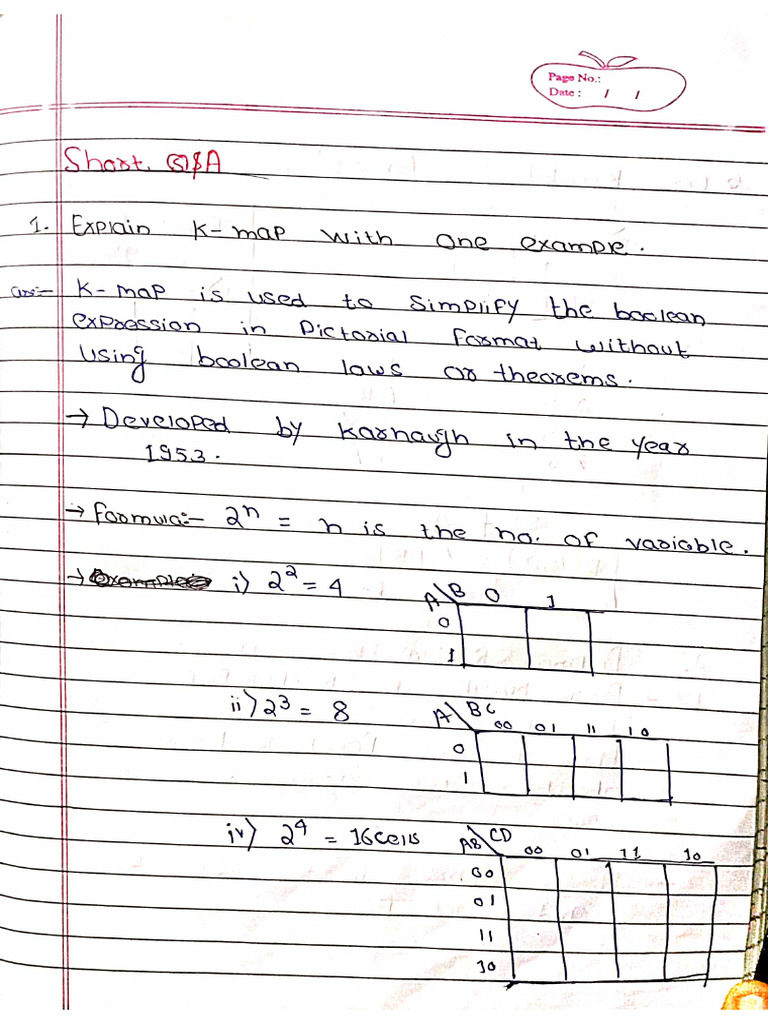 Page No.:
Date : / /
Short. Q&A
1. Explain K-map with one example.
ans:- K-map is used to simplify the boolean
expression in Pictorial format without
using boolean laws or theorems.
→ Developed by Karnaugh in the year
1953.
→ formula:- 2ⁿ = n is the no. of variable.
→ i) 2² = 4 A\B 0 1
0
1
ii) 2³ = 8 A\BC 00 01 11 10
0
1
iv) 2⁴ = 16 cells AB\CD 00 01 11 10
00
01
11
10